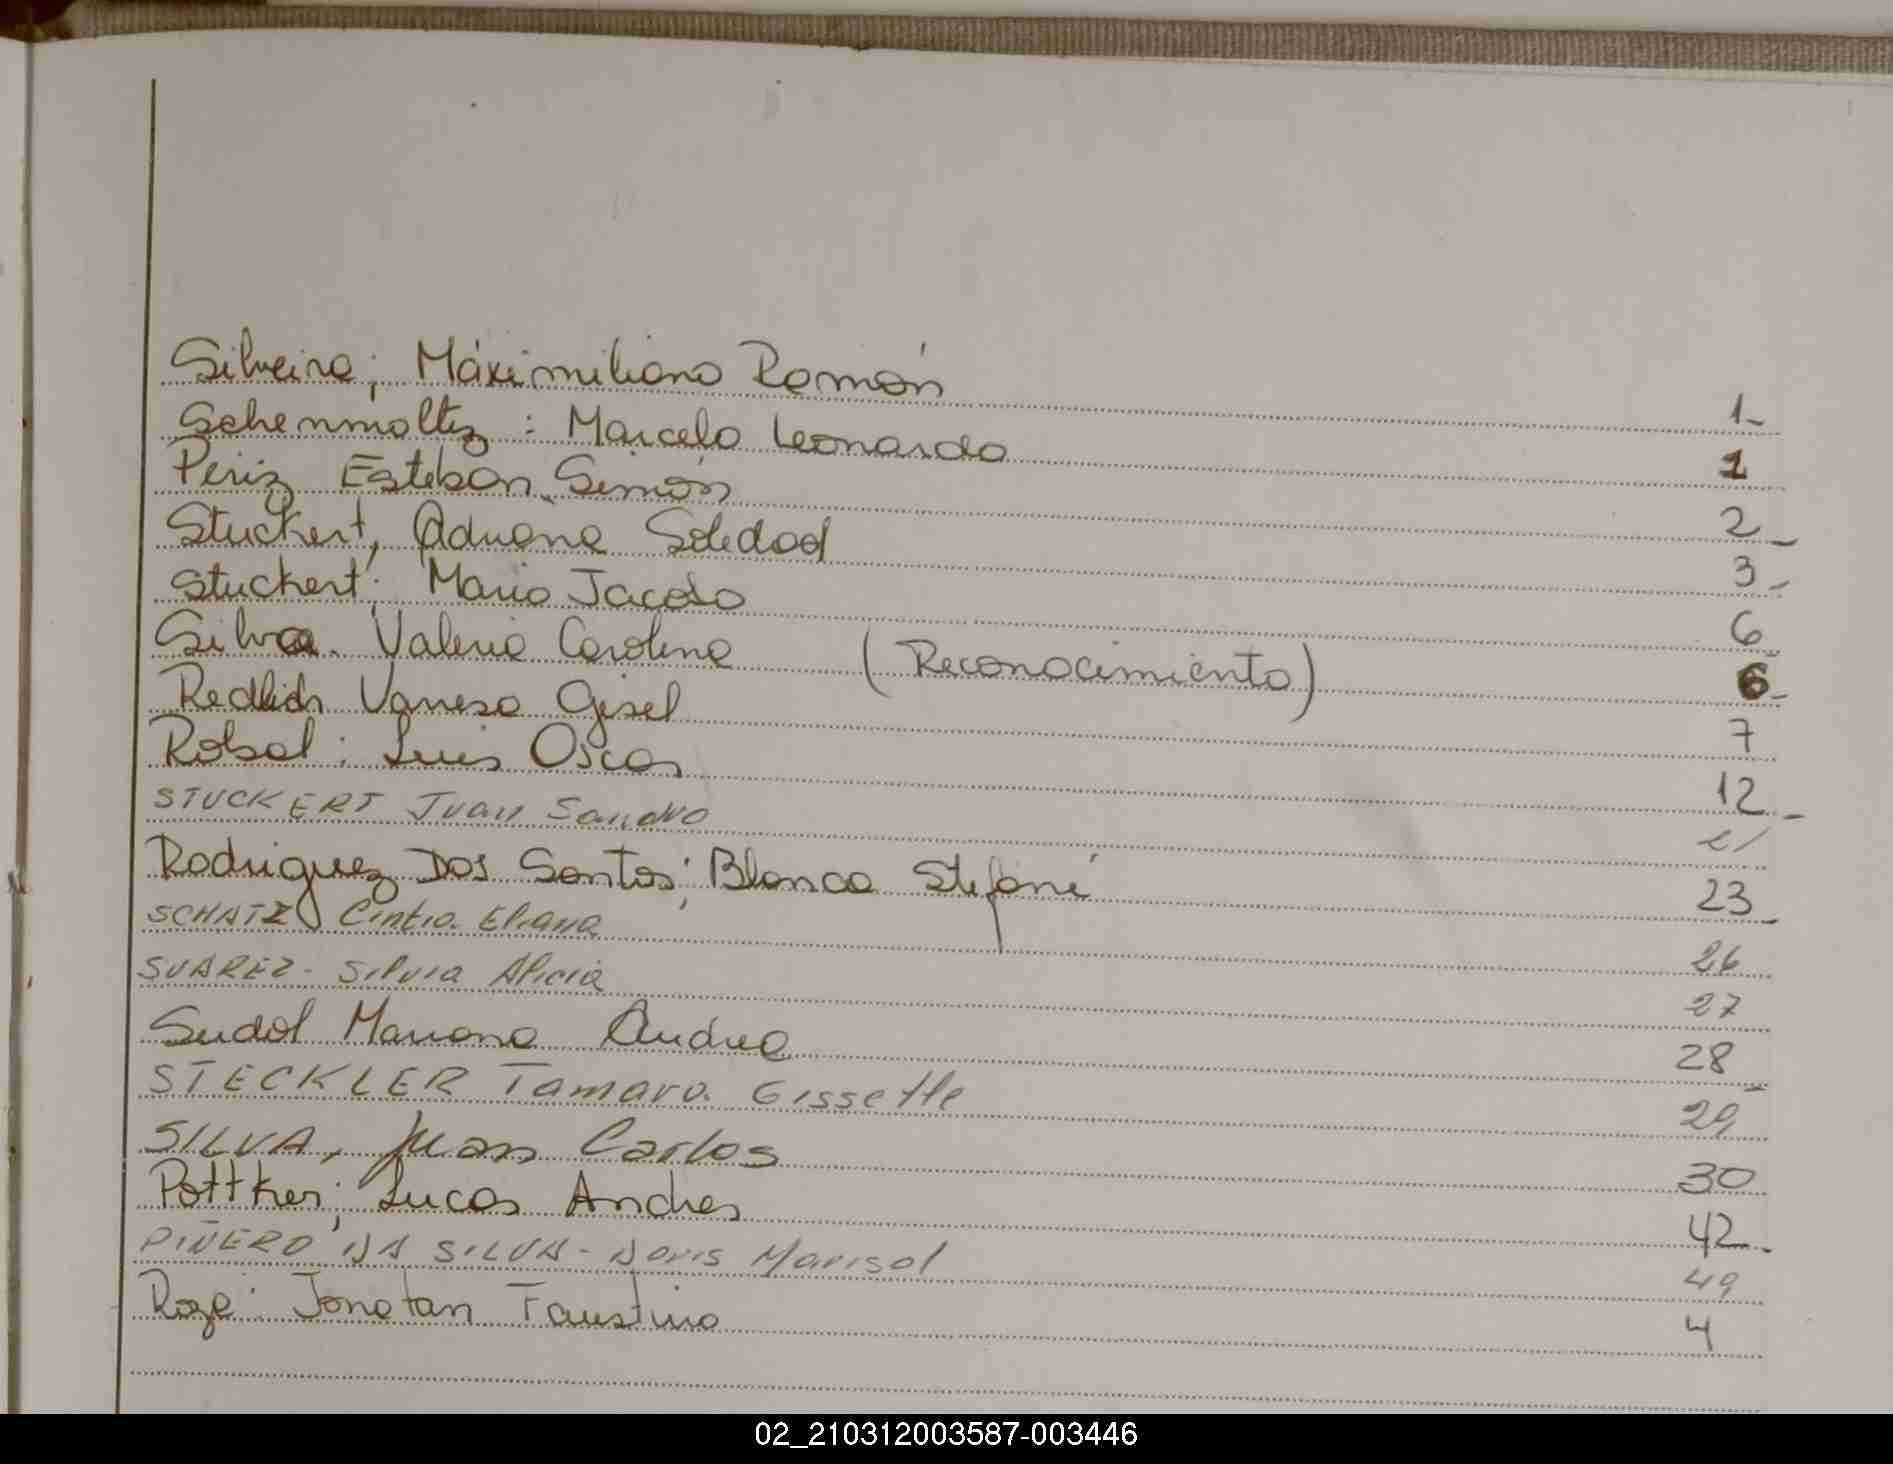 Silveira; Máximiliano Ramón 1-
Schenmoltz: Marcelo Leonardo 1
Periz Esteban Simón 2-
Stuckert, Adriana Soledad 3-
Stuckert; Mario Jacobo 6
Silva. Valeria Carolina (Reconocimiento) 6-
Redlich Vanesa Gisel 7
Robal: Luis Oscar 12-
STUCKERT Juan Sandro 21
Rodriguez Dos Santos; Blanca Stefani 23-
SCHATZ Cintia Eliana 26
SUAREZ- Silvia Alicia 27
Sudol Mariana Andrea 28-
STECKLER Tamara Gissette 29
SILVA, Juan Carlos 30
Pottker; Lucas Andres 42-
PIÑERO DA SILVA- Doris Marisol 49
Roza: Jonatan Faustino 4
02_210312003587-003446